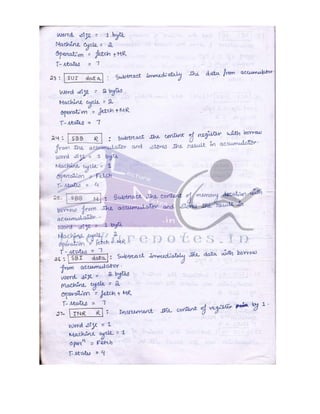 word size = 1 byte
Machine Cycle = 2
Operation = fetch + MR
T-states = 7
23: SUI data : Subtract immediately the data from accumulator
word size = 2 bytes
Machine cycle = 2
operation = fetch + MR
T-states = 7
24: SBB R : Subtract the content of register with borrow
from the accumulator and stores the result in accumulator.
word size = 1 byte
Machine cycle = 1
operation = Fetch
T-states = 4
25: SBB M : Subtract the content of memory location with
borrow from the accumulator and stores the result in
accumulator.
word size = 1 byte
Machine cycle = 2
operation = fetch + MR
T-states = 7
26: SBI data : Subtract immediately the data with borrow
from accumulator.
word size = 2 bytes
Machine cycle = 2
operation = fetch + MR
T-states = 7
27. INR R : Increment the content of register by 1.
word size = 1
Machine cycle = 1
Opnⁿ = Fetch
T-states = 4